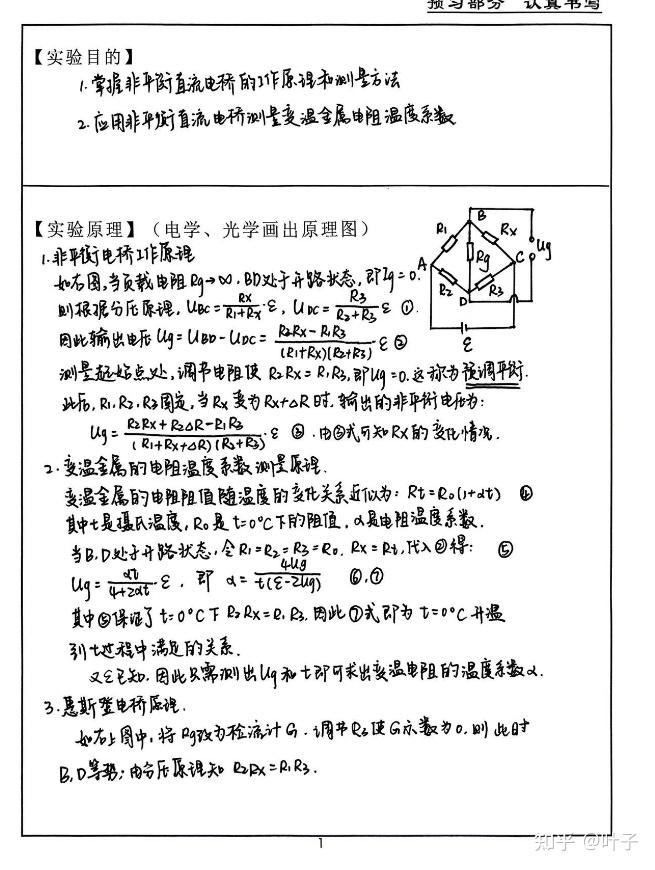 预习部分 认真书写
【实验目的】
1.掌握非平衡直流电桥的工作原理和测量方法
2.应用非平衡直流电桥测量变温金属电阻温度系数
【实验原理】(电学、光学画出原理图)
1.非平衡电桥工作原理
如右图,当负载电阻Rg→∞,BD处于开路状态,即Ig=0.
则根据分压原理,UBC=RX/(R1+RX)·ε, UDC=R3/(R2+R3)·ε ①.
因此输出电压Ug=UBD-UDC=(R2RX-R1R3)/((R1+RX)(R2+R3))·ε ②
测量起始点处,调节电阻使 R2RX=R1R3,即Ug=0.这称为预调平衡.
此后,R1.R2.R3固定,当RX变为RX+ΔR时.输出的非平衡电压为:
Ug=(R2RX+R2ΔR-R1R3)/((R1+RX+ΔR)(R2+R3))·ε ③.由③式可知RX的变化情况.
2.变温金属的电阻温度系数测量原理.
变温金属的电阻阻值随温度的变化关系近似为: Rt=R0(1+αt) ④
其中t是摄氏温度,R0是t=0°C下的阻值,α是电阻温度系数.
当B,D处于开路状态,令R1=R2=R3=R0, RX=Rt,代入②得: ⑤
Ug=αt/(4+2αt)·ε, 即 α=4Ug/(t(ε-2Ug)) ⑥,⑦
其中⑤保证了t=0°C下R2RX=R1R3,因此⑦式即为t=0°C升温
到t过程中满足的关系.
又ε已知.因此只需测出Ug和t即可求出变温电阻的温度系数α.
3.惠斯登电桥原理.
如右上图中,将Rg改为检流计G.调节R3使G示数为0.则此时
B,D等势;由分压原理知 R2RX=R1R3.
B
R1
RX
Rg
Ug
A
C
R2
D
R3
ε
1
知乎 @叶子